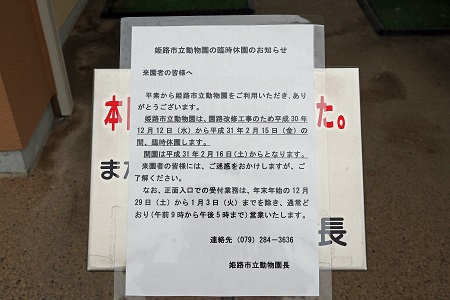 姫路市立動物園の臨時休園のお知らせ
来園者の皆様へ
平素から姫路市立動物園をご利用いただき、あり
がとうございます。
姫路市立動物園は、園路改修工事のため平成30年
12月12日（水）から平成31年2月15日（金）の
間、臨時休園します。
開園は平成31年2月16日（土）からとなります。
来園者の皆様には、ご迷惑をおかけしますが、
ご了解ください。
なお、正面入口での受付業務は、年末年始の12月
29日（土）から1月3日（火）までを除き、通常ど
おり（午前9時から午後5時まで）営業いたします。
連絡先（079）284-3636
姫路市立動物園長
本
た。
ま
長